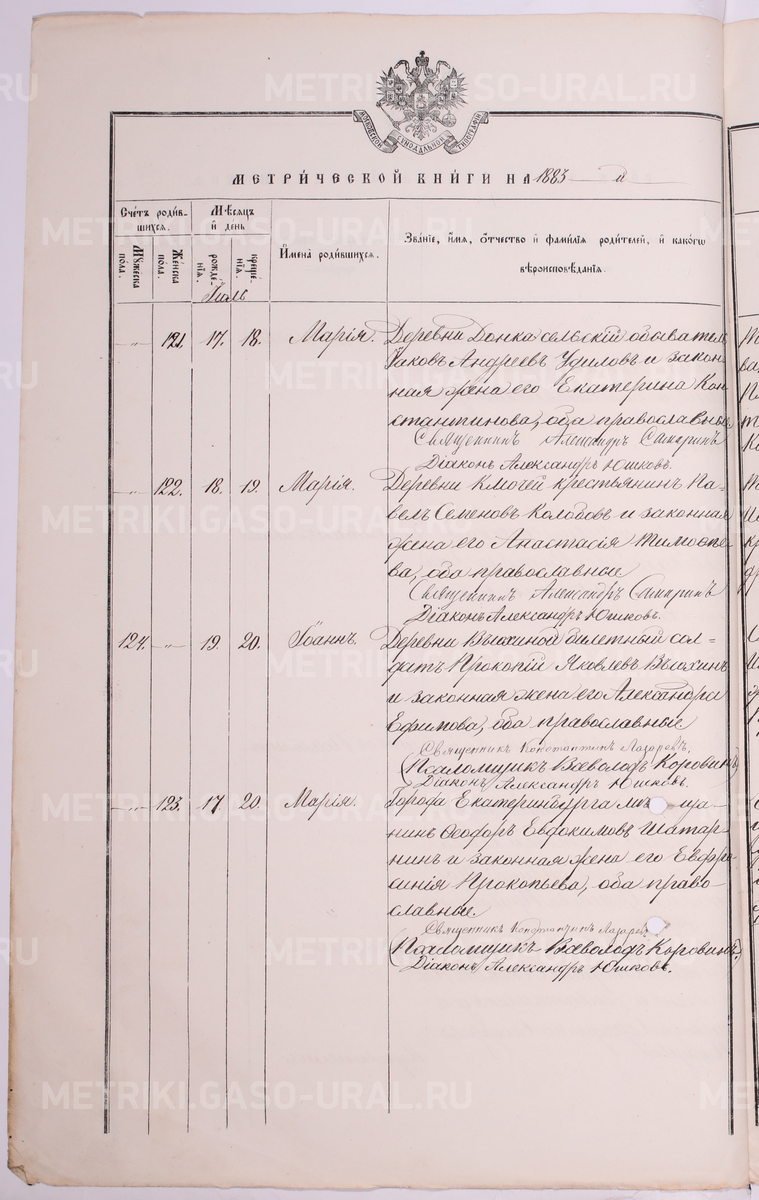 METRIKI.GASO-URAL.RU
МОСКОВСКОЙ СѴНОДАЛЬНОЙ ТИПОГРАФІИ
МЕТРИ́ЧЕСКОЙ КНИ́ГИ НА 1883 й
Сче́тъ роди́в-
шихся.
Мꙋ́жеска
по́ла.
Же́нска
по́ла.
Мѣ́сяцъ
и̂ день
рожде́-
нїя.
креще́-
нїя.
И́мена̀ роди́вшихся.
Зва́нїе, и́мя, ѻ҆́тчество и̂ фамилїя роди́телей, и̂ како́гѡ
вѣроисповѣ́данїя.
Іюль
„ 121. 17. 18. Марія. Деревни Донка сельскій обыватель
Іаковъ Андреевъ Удиловъ и закон-
ная жена его Екатерина Кон-
стантинова, оба православные
Священникъ Александръ Симоринъ
Діаконъ Александръ Юшковъ.
„ 122. 18. 19. Марія. Деревни Ключей крестьянинъ Па-
велъ Семеновъ Колобовъ и законная
жена его Анастасія Тимоѳее-
ва, оба православные
Священникъ Александръ Симоринъ
Діаконъ Александръ Юшковъ.
124. „ 19. 20. Іоаннъ. Деревни билетный сол-
датъ Прокопій Яковлевъ
и законная жена его Александра
Ефимова, оба православные
Священникъ Константинъ Лазаревъ.
Псаломщикъ Всеволодъ Коровинъ
Діаконъ Александръ Юшковъ.
„ 123. 17 20. Марія. Города Екатеринбурга мѣща-
нинъ Ѳеодоръ Евдокимовъ Шатар-
нинъ и законная жена его Евфро-
синія Прокопьева, оба право-
славные.
Священникъ Константинъ Лазаревъ
Псаломщикъ Всеволодъ Коровинъ.
Діаконъ Александръ Юшковъ.